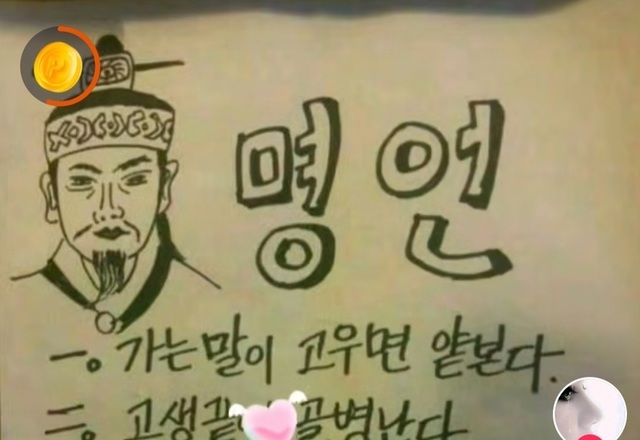 명언
一。 가는말이 고우면 얕본다.
二。 고생끝 골병난다